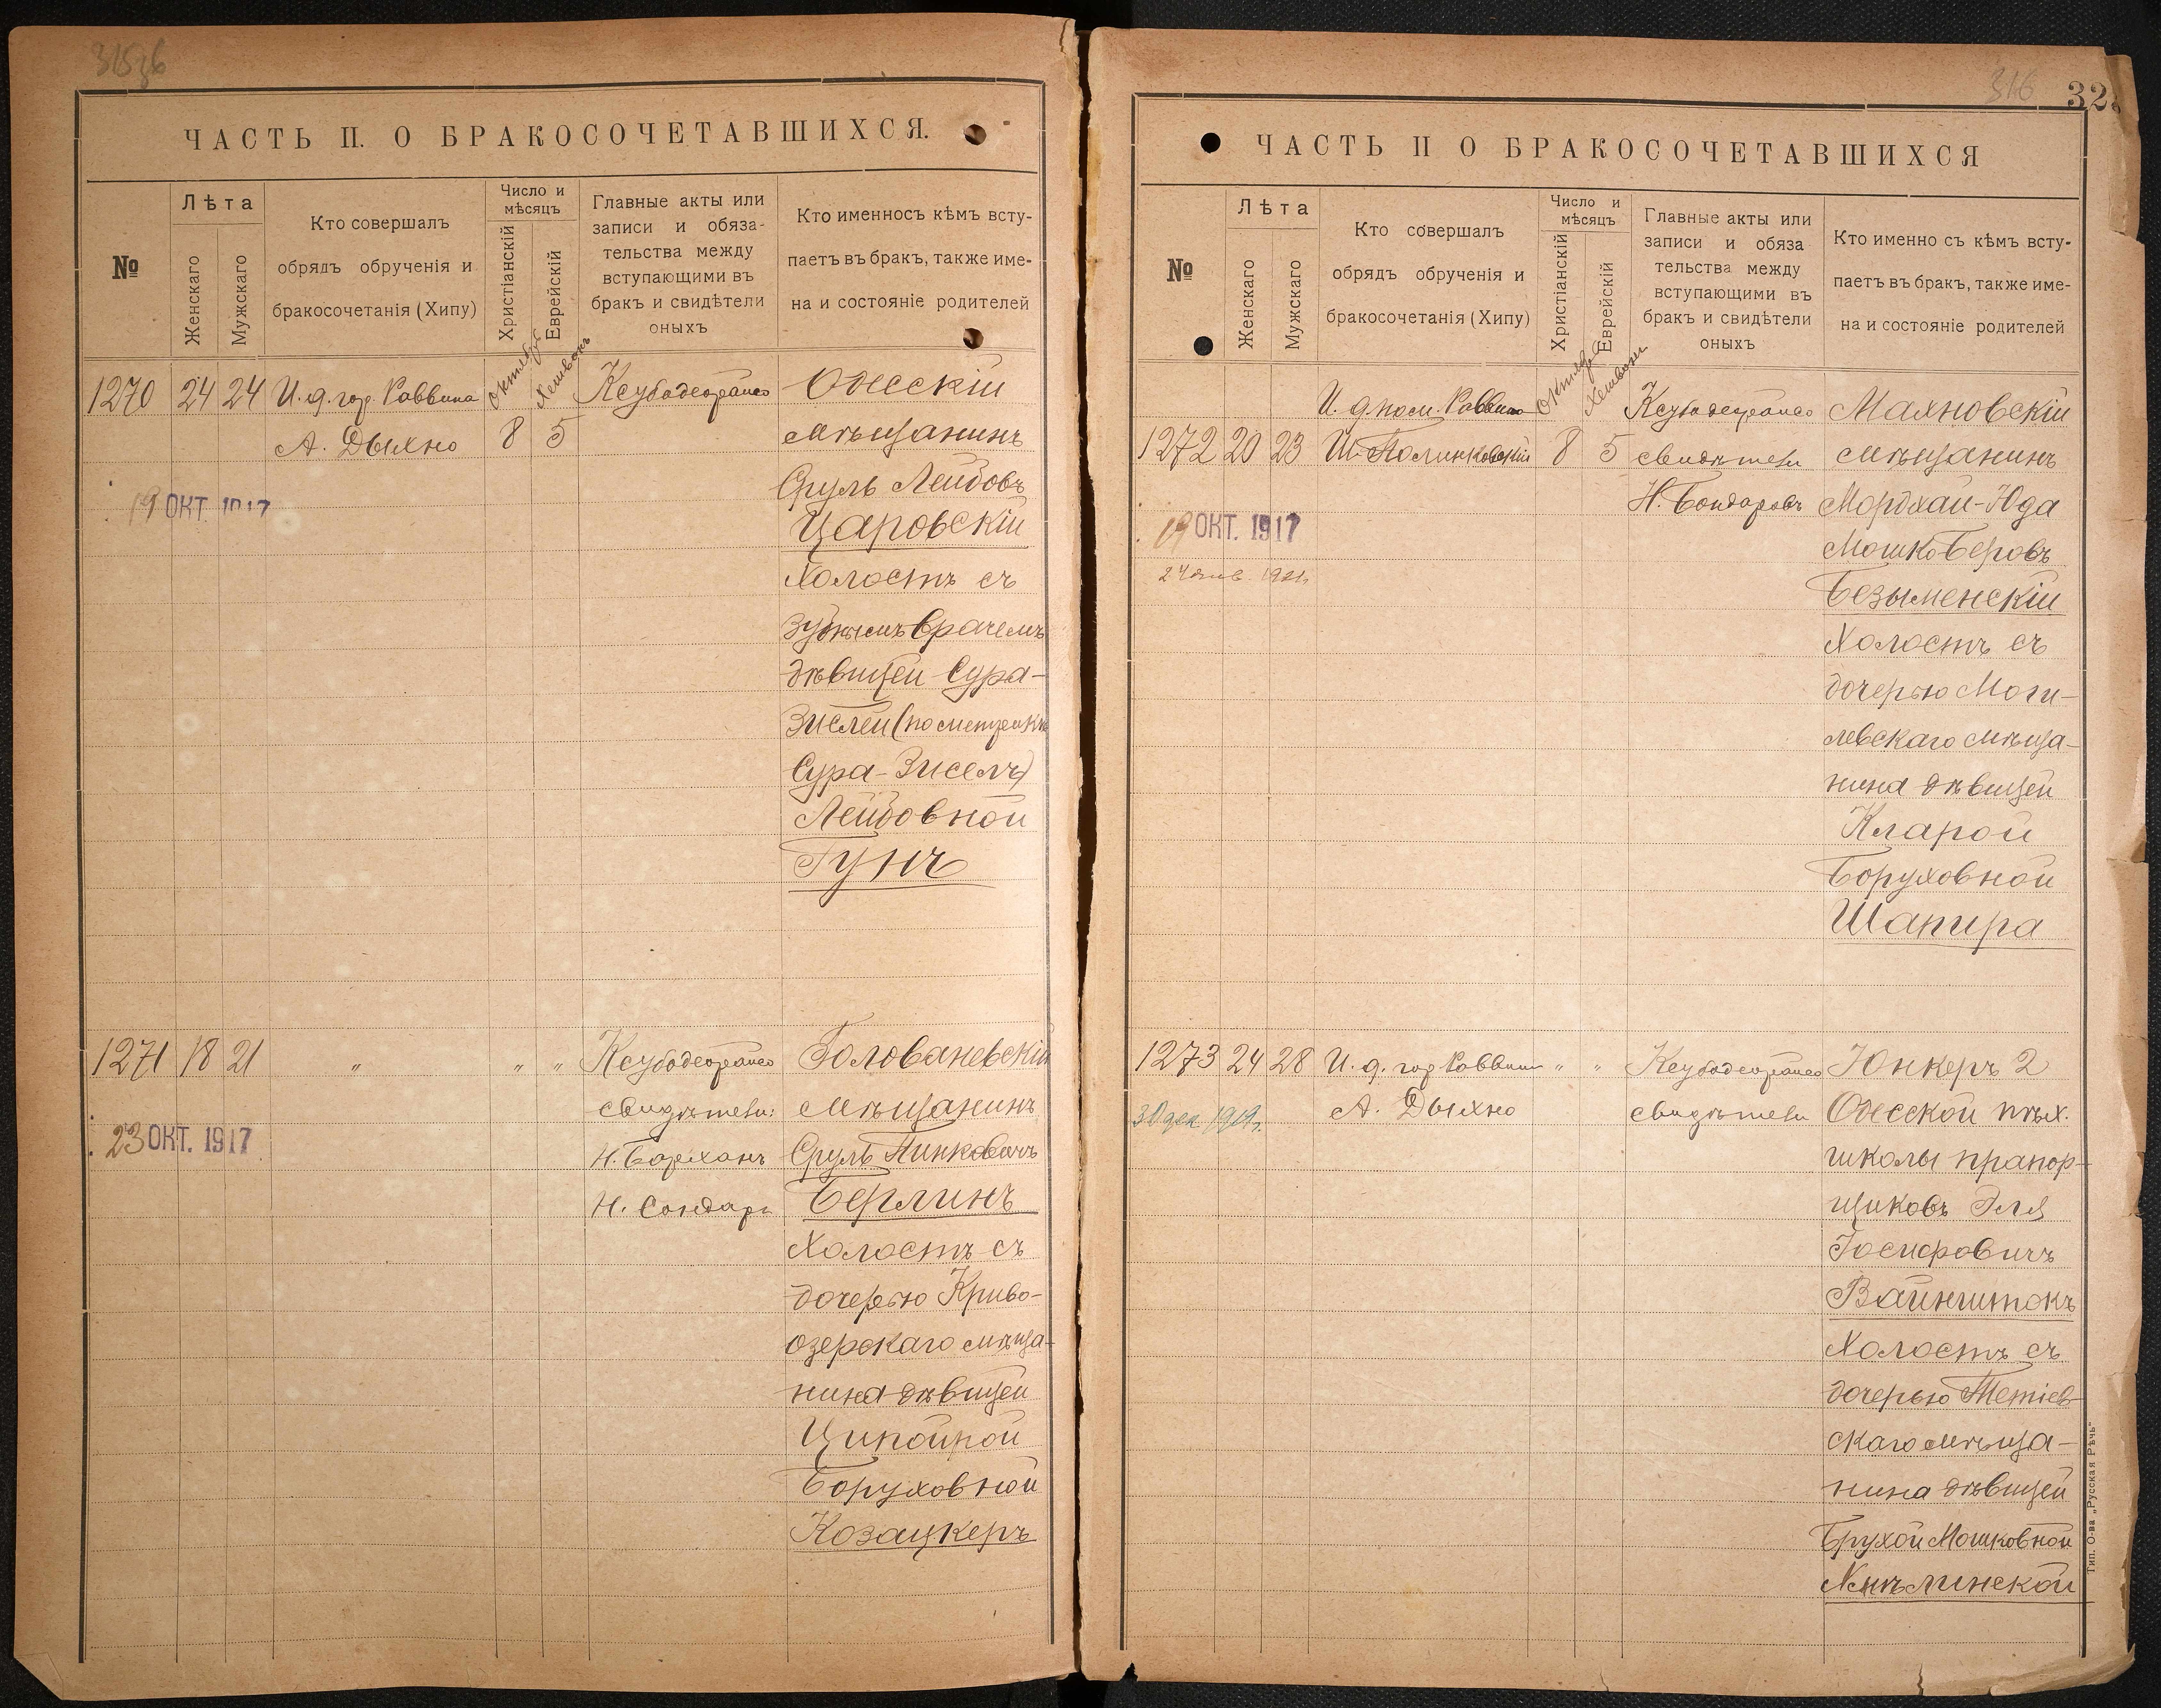 315об
ЧАСТЬ II. О БРАКОСОЧЕТАВШИХСЯ.
№
Лѣта
Женскаго
Мужскаго
Кто совершалъ
обрядъ обрученія и
бракосочетанія (Хипу)
Число и
мѣсяцъ
Христіанскій
Еврейскій
Главные акты или
записи и обяза-
тельства между
вступающими въ
бракъ и свидѣтели
оныхъ
Кто именносъ кѣмъ всту-
паетъ въ бракъ, также име-
на и состояніе родителей
Октябрь
Хешвонъ
1270 24 24 И. д. гор. Раввина
А. Дыхно 8 5
19 ОКТ. 1917
Ксубодеорайсо
Одесскій
мѣщанинъ
Сруль Лейбовъ
Царовскій
холостъ съ
зубнымъ врачемъ
дѣвицей Сура-
Зислей (по метрикѣ
Сура-Зисель)
Лейбовной
Гунъ
1271 18 21 " " "
23 ОКТ. 1917
Ксубодеорайсо
свидѣтели:
Н. Барханъ
Н. Сондаръ
Голованевскій
мѣщанинъ
Сруль Пинковичъ
Берлинъ
холостъ съ
дочерью Криво-
озерскаго мѣща-
нина дѣвицей
Ципойрой
Боруховной
Козацкеръ
316
32
ЧАСТЬ II О БРАКОСОЧЕТАВШИХСЯ
№
Лѣта
Женскаго
Мужскаго
Кто совершалъ
обрядъ обрученія и
бракосочетанія (Хипу)
Число и
мѣсяцъ
Христіанскій
Еврейскій
Главные акты или
записи и обяза
тельства между
вступающими въ
бракъ и свидѣтели
оныхъ
Кто именно съ кѣмъ всту-
паетъ въ бракъ, также име-
на и состояніе родителей
Октябрь
Хешвонъ
И. д. пом. Раввина
1272 20 23 Ш. Полинковскій 8 5
19 ОКТ. 1917
24 янв. 1921.
Ксубодеорайсо
свидѣтели
Н. Бондаровъ
Махновскій
мѣщанинъ
Мордхай-Юда
Мошко-Беровъ
Безыменскій
холостъ съ
дочерью Моги-
левскаго мѣща-
нина дѣвицей
Кларой
Боруховной
Шапира
1273 24 28 И. д. гор. Раввина " "
А. Дыхно
30 дек. 1919г.
Ксубодеорайсо
свидѣтели
Юнкеръ 2
Одесской пѣх.
школы прапор-
щиковъ Эля
Іосифовичъ
Вайнштокъ
холостъ съ
дочерью Тетіев-
скаго мѣща-
нина дѣвицей
Брухой Мошковной
Хмѣлинской
Тип. О-ва „Русская Рѣчь“